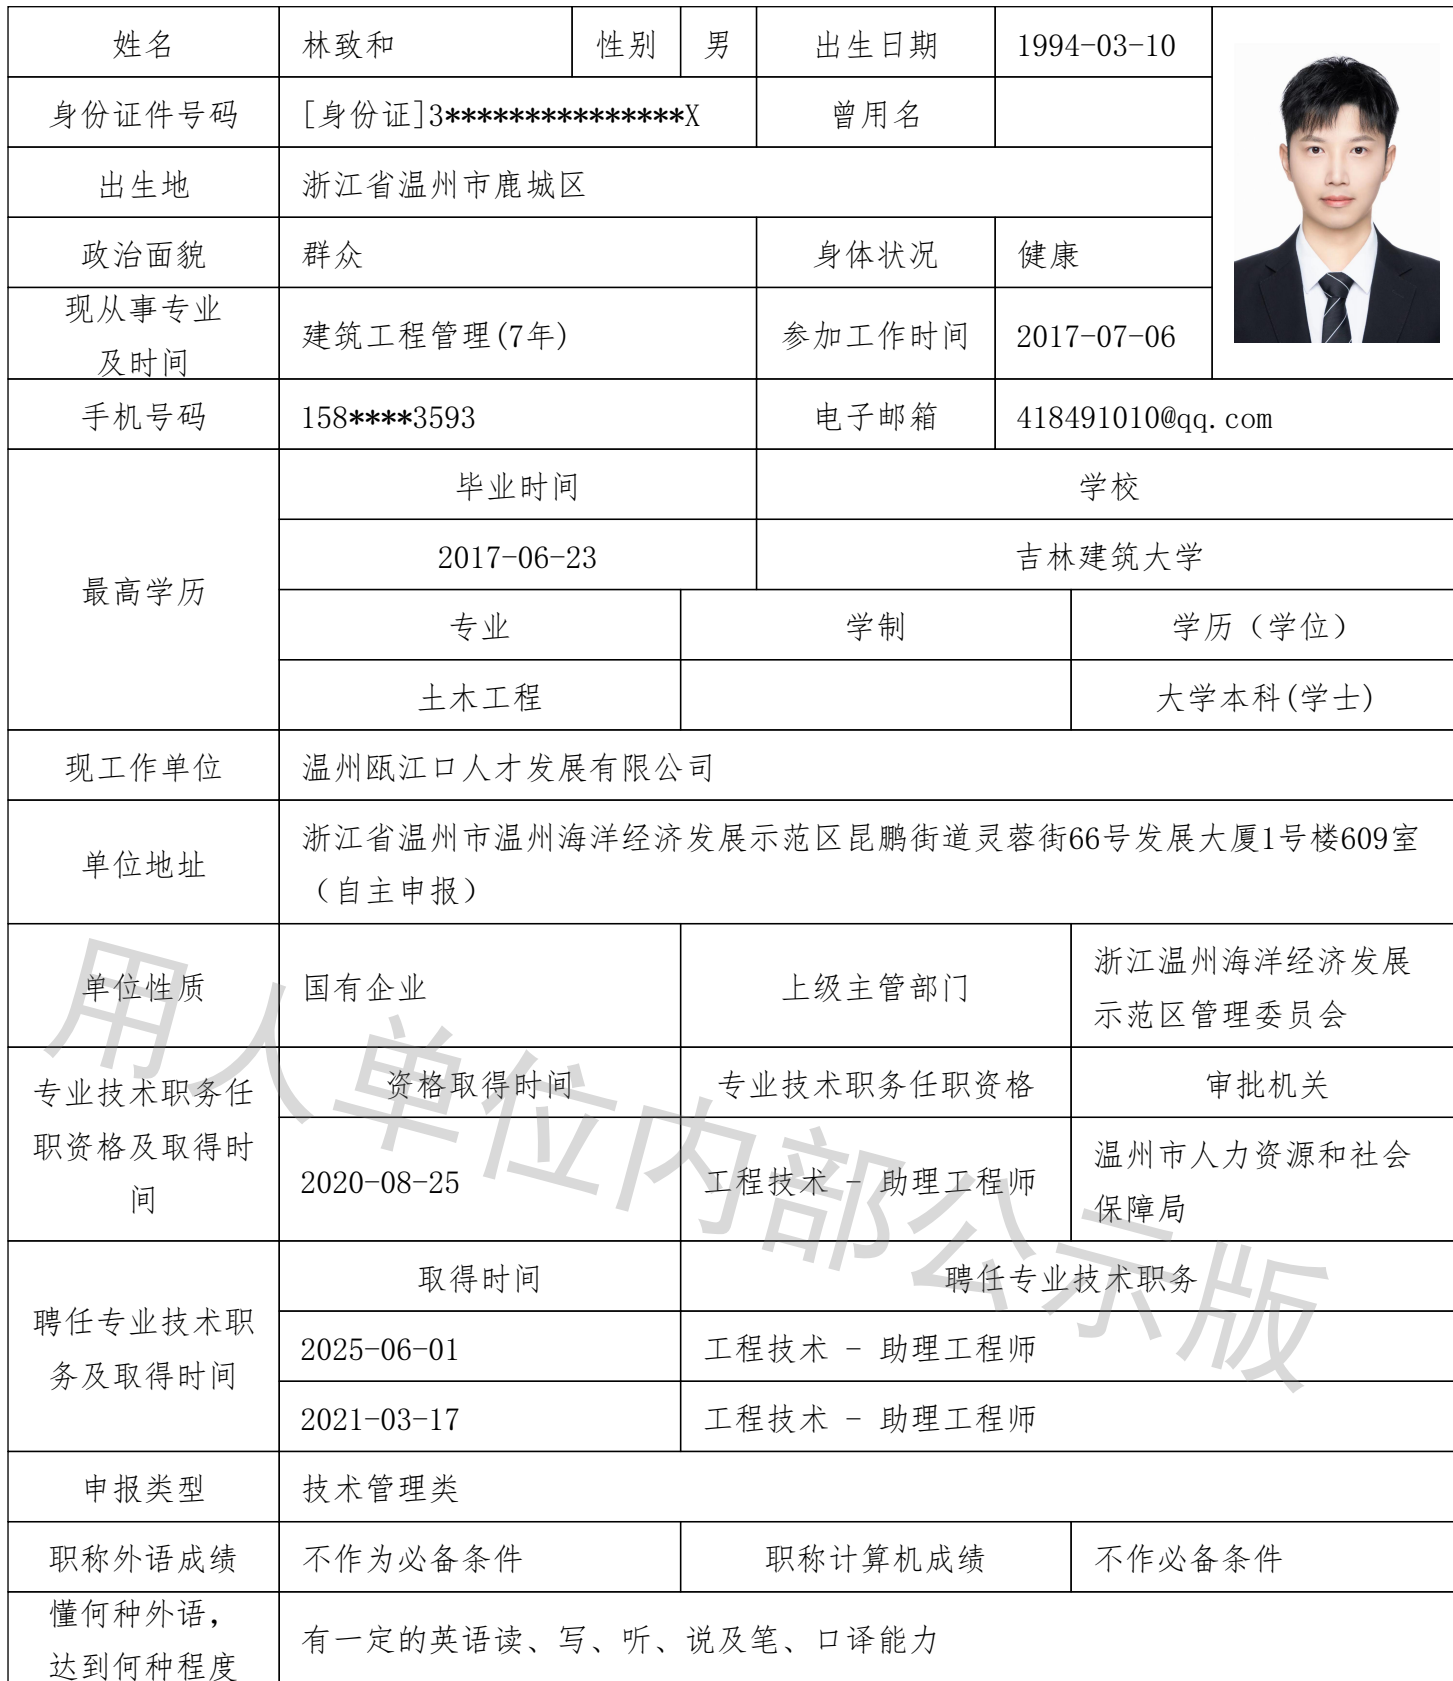 姓名 林致和 性别 男 出生日期 1994-03-10
身份证件号码 [身份证]3***************X 曾用名
出生地 浙江省温州市鹿城区
政治面貌 群众 身体状况 健康
现从事专业
及时间
建筑工程管理(7年) 参加工作时间 2017-07-06
手机号码 158****3593 电子邮箱 418491010@qq.com
最高学历
毕业时间 学校
2017-06-23 吉林建筑大学
专业 学制 学历（学位）
土木工程 大学本科(学士)
现工作单位 温州瓯江口人才发展有限公司
单位地址
浙江省温州市温州海洋经济发展示范区昆鹏街道灵蓉街66号发展大厦1号楼609室
（自主申报）
单位性质 国有企业 上级主管部门
浙江温州海洋经济发展
示范区管理委员会
专业技术职务任
职资格及取得时
间
资格取得时间 专业技术职务任职资格 审批机关
2020-08-25 工程技术 - 助理工程师
温州市人力资源和社会
保障局
聘任专业技术职
务及取得时间
取得时间 聘任专业技术职务
2025-06-01 工程技术 - 助理工程师
2021-03-17 工程技术 - 助理工程师
申报类型 技术管理类
职称外语成绩 不作为必备条件 职称计算机成绩 不作必备条件
懂何种外语，
达到何种程度
有一定的英语读、写、听、说及笔、口译能力
用人单位内部公示版